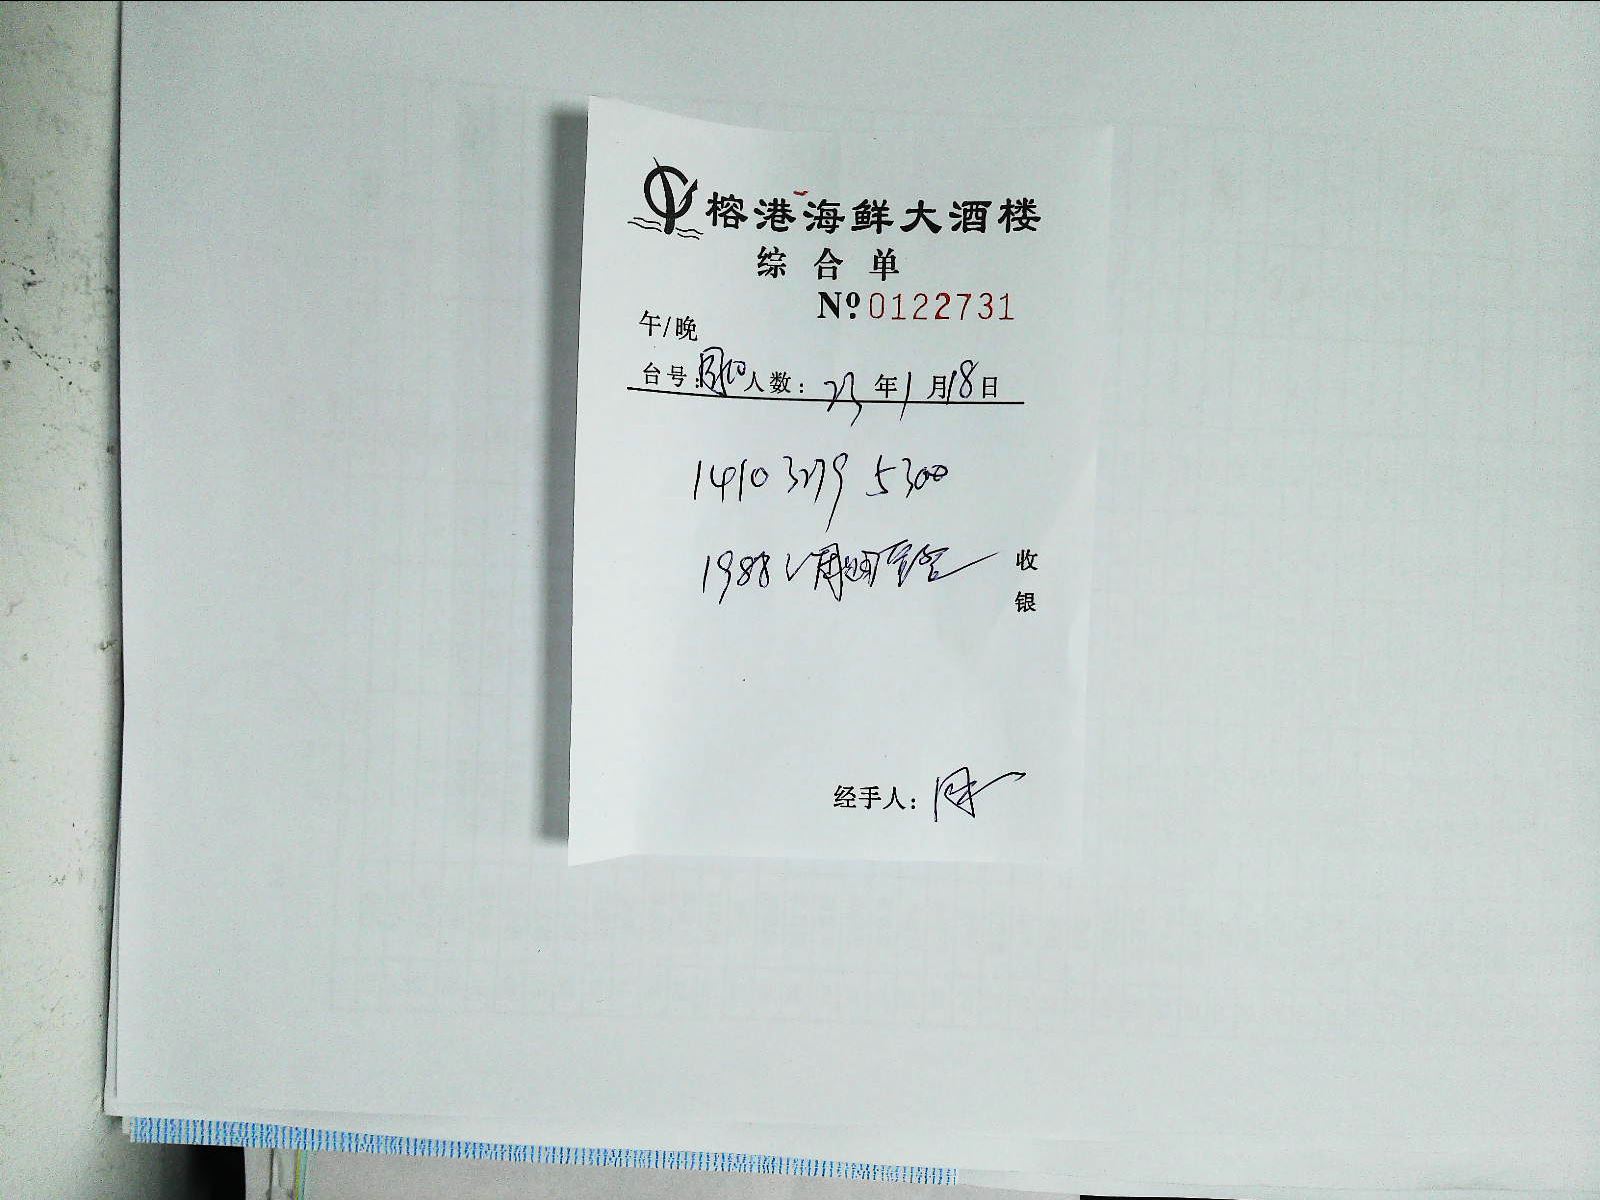 榕港海鲜大酒楼
综合单
Nº:0122731
午/晚
台号: 人数: 23年1月18日
1410 3279 5300
1988
收银
经手人: